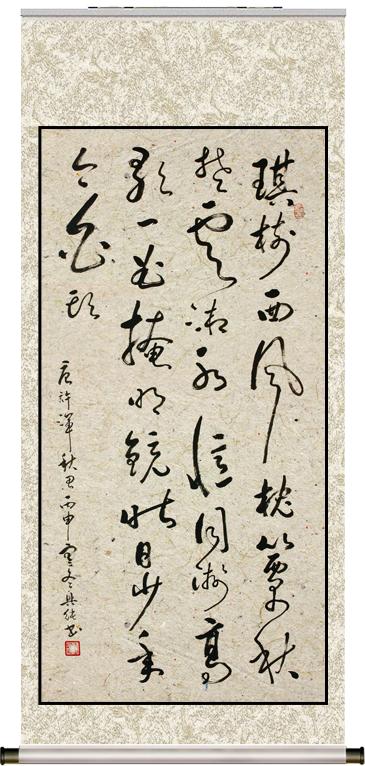 琪樹西風枕簟秋
楚雲湘水憶同游高
歌一曲掩明鏡昨日少年
今白頭
唐許渾秋思丙申寒冬興能書